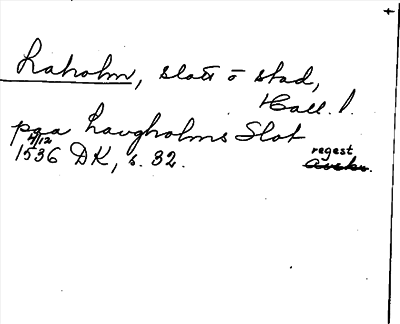 Laholm, slott o stad,
Hall. l.
paa Laugholms Slot
4/12
1536 DK, s. 32.
regest